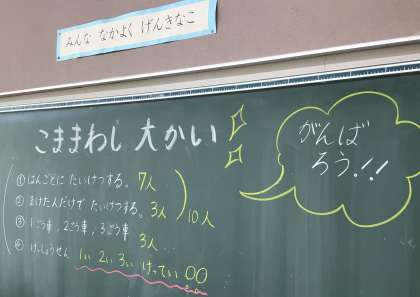 みんな なかよく げんきなこ
こままわし 大かい
① はんごとに たいけつする。 7人
② まけた人だけで たいけつする。 3人
10人
③ 1ごう車、2ごう車、3ごう車 3人
④ けっしょうせん 1い 2い 3い けってい 〇〇
がんば
ろう!!!